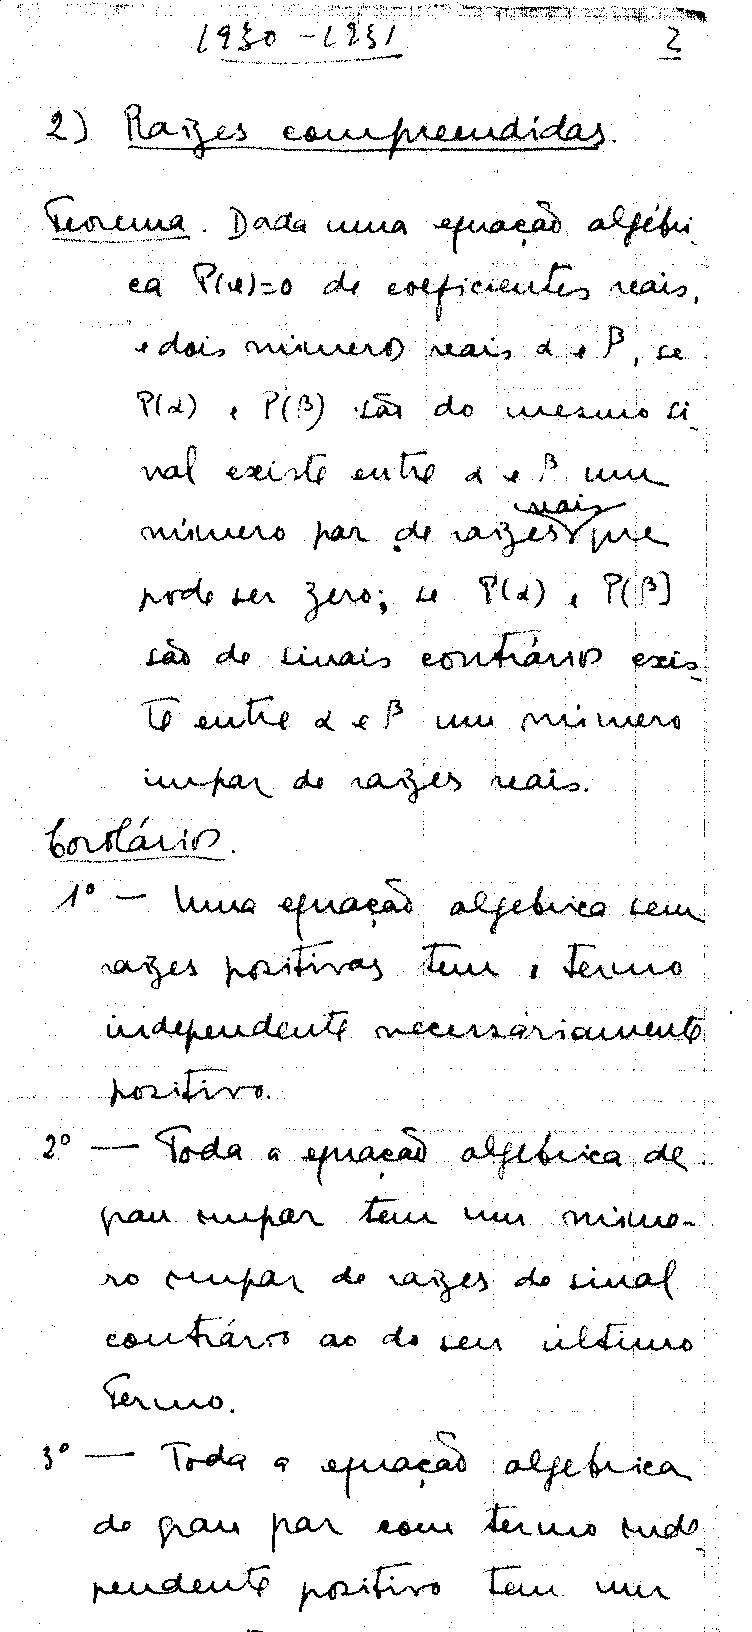 1930-1931 2
2) Raizes compreendidas.
Teorema. Dada uma equação algébri-
ca P(x)=0 de coeficientes reais,
e dois numeros reais α e β, se
P(α) e P(β) são do mesmo si-
nal existe entre α e β um
reais
número par de raizes que
pode ser zero; se P(α) e P(β)
são de sinais contrários exis-
te entre α e β um número
impar de raizes reais.
Corolários.
1º — Uma equação algebrica sem
raizes positivas tem o termo
independente necessáriamente
positivo.
2º — Toda a equação algebrica de
grau impar tem um núme-
ro impar de raizes de sinal
contrário ao do seu último
termo.
3º — Toda a equação algebrica
de grau par com termo inde-
pendente positivo tem um